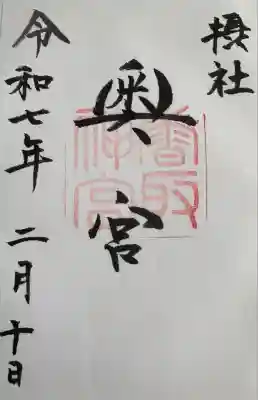 摂社
奥宮
香取神宮
令和七年 二月 十日